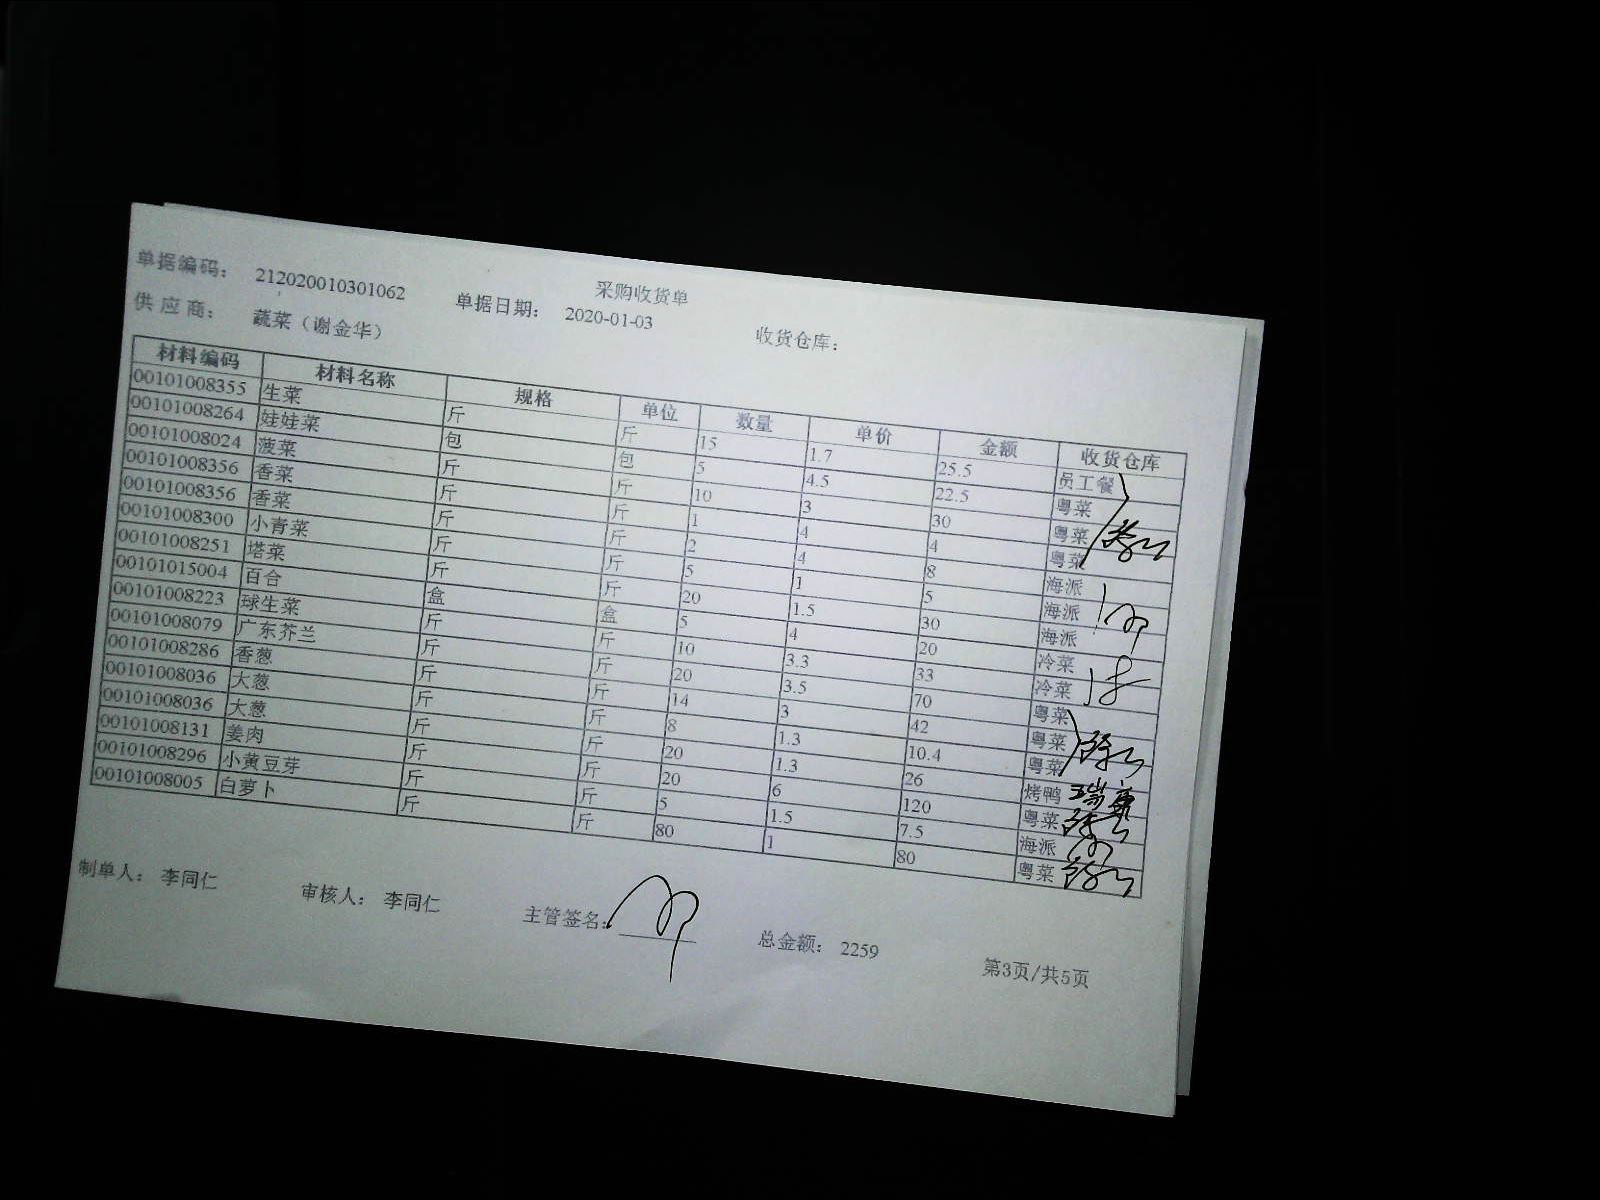 采购收货单
单据编码： 212020010301062 单据日期： 2020-01-03 收货仓库：
供 应 商： 蔬菜（谢金华）
材料编码 材料名称 规格 单位 数量 单价 金额 收货仓库
00101008355 生菜 斤 斤 15 1.7 25.5 员工餐
00101008264 娃娃菜 包 包 5 4.5 22.5 粤菜
00101008024 菠菜 斤 斤 10 3 30 粤菜
00101008356 香菜 斤 斤 1 4 4 粤菜
00101008356 香菜 斤 斤 2 4 8 海派
00101008300 小青菜 斤 斤 5 1 5 海派
00101008251 塔菜 斤 斤 20 1.5 30 海派
00101015004 百合 盒 盒 5 4 20 冷菜
00101008223 球生菜 斤 斤 10 3.3 33 冷菜
00101008079 广东芥兰 斤 斤 20 3.5 70 粤菜
00101008286 香葱 斤 斤 14 3 42 粤菜
00101008036 大葱 斤 斤 8 1.3 10.4 粤菜
00101008036 大葱 斤 斤 20 1.3 26 烤鸭 瑞康
00101008131 姜肉 斤 斤 20 6 120 粤菜
00101008296 小黄豆芽 斤 斤 5 1.5 7.5 海派
00101008005 白萝卜 斤 斤 80 1 80 粤菜
制单人： 李同仁 审核人： 李同仁 主管签名： 总金额： 2259 第3页/共5页